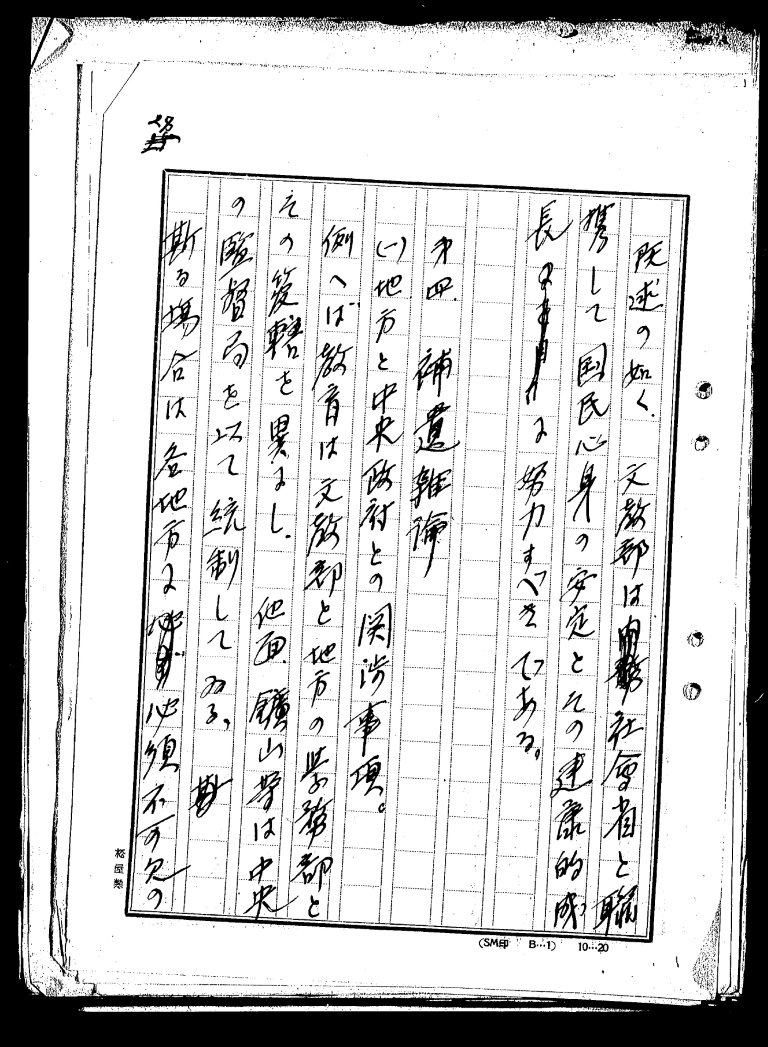 既述の如く、文教部は社会省と聯
携して国民心身の安定とその建康的成
長に努力すべきである。
第四、補遺雑論
(一)地方と中央政府との関渉事項。
例へば教育は文教部と地方の学務部と
その管轄を異にし、他面、鑛山業は中央
の監督局を以て統制してゐる。
斯る場合は各地方に必須不可欠の
(SM印 B…1) 10…20